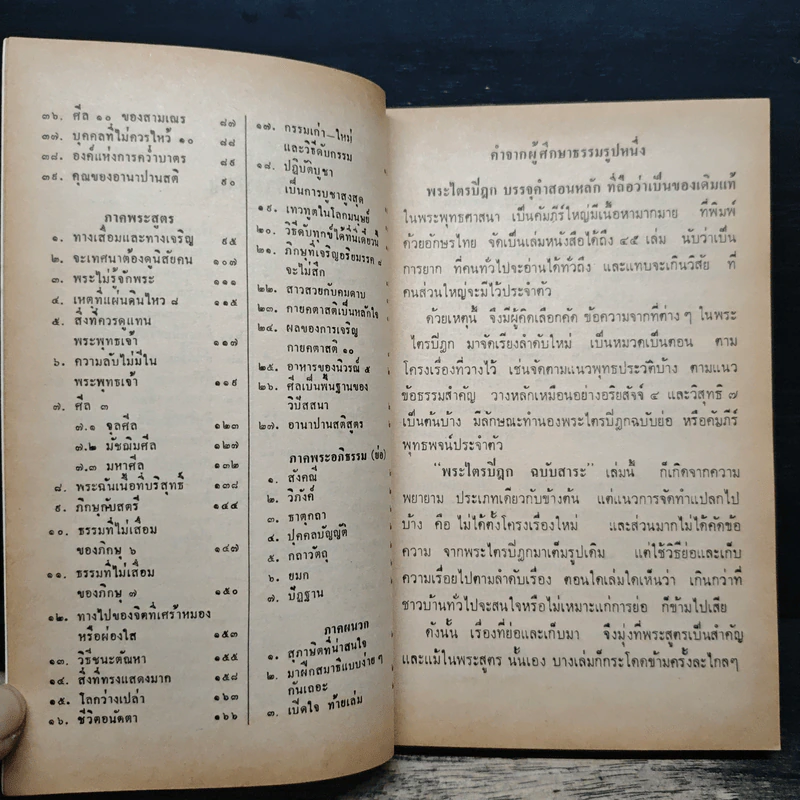 ๓๖. ศีล ๑๐ ของสามเณร ๘๗
๓๗. บุคคลที่ไม่ควรไหว้ ๑๐ ๘๘
๓๘. องค์แห่งการคว่ำบาตร ๘๙
๓๙. คุณของอานาปานสติ ๙๐
ภาคพระสูตร
๑. ทางเสื่อมและทางเจริญ ๙๕
๒. จะเทศนาต้องดูนิสัยคน ๑๐๗
๓. พระไม่รู้จักพระ ๑๑๑
๔. เหตุที่แผ่นดินไหว ๘ ๑๑๕
๕. สิ่งที่ควรดูแทน
พระพุทธเจ้า ๑๑๗
๖. ความลับไม่มีใน
พระพุทธเจ้า ๑๑๙
๗. ศีล ๓
๗.๑ จุลศีล ๑๒๓
๗.๒ มัชฌิมศีล ๑๒๗
๗.๓ มหาศีล ๑๓๒
๘. พระฉันเนื้อที่บริสุทธิ์ ๑๓๘
๙. ภิกษุกับสตรี ๑๔๔
๑๐. ธรรมที่ไม่เสื่อม
ของภิกษุ ๖ ๑๔๗
๑๑. ธรรมที่ไม่เสื่อม
ของภิกษุ ๗ ๑๕๐
๑๒. ทางไปของจิตที่เศร้าหมอง
หรือผ่องใส ๑๕๓
๑๓. วิธีชนะตัณหา ๑๕๕
๑๔. สิ่งที่ทรงแสดงมาก ๑๕๘
๑๕. โลกว่างเปล่า ๑๖๓
๑๖. ชีวิตอนัตตา ๑๖๖
๑๗. กรรมเก่า—ใหม่
และวิธีดับกรรม
๑๘. ปฏิบัติบูชา
เป็นการบูชาสูงสุด
๑๙. เทวทูตในโลกมนุษย์
๒๐. วิธีดับทุกข์ได้ทันเดี๋ยวนี้
๒๑. ภิกษุที่เจริญอริยมรรค ๘
จะไม่สึก
๒๒. สาวสวยกับคมดาบ
๒๓. กายคตาสติเป็นหลักใจ
๒๔. ผลของการเจริญ
กายคตาสติ ๑๐
๒๕. อาหารของนิวรณ์ ๕
๒๖. ศีลเป็นพื้นฐานของ
วิปัสสนา
๒๗. อานาปานสติสูตร
ภาคพระอภิธรรม (ย่อ)
๑. สังคณี
๒. วิภังค์
๓. ธาตุกถา
๔. ปุคคลบัญญัติ
๕. กถาวัตถุ
๖. ยมก
๗. ปัฏฐาน
ภาคผนวก
๑. สุภาษิตที่น่าสนใจ
๒. มาฝึกสมาธิแบบง่าย ๆ
กันเถอะ
๓. เปิดใจ ท้ายเล่ม
คำจากผู้ศึกษาธรรมรูปหนึ่ง
พระไตรปิฎก บรรจุคำสอนหลัก ที่ถือว่าเป็นของเดิมแท้
ในพระพุทธศาสนา เป็นคัมภีร์ใหญ่มีเนื้อหามากมาย ที่พิมพ์
ด้วยอักษรไทย จัดเป็นเล่มหนังสือได้ถึง ๔๕ เล่ม นับว่าเป็น
การยาก ที่คนทั่วไปจะอ่านได้ทั่วถึง และแทบจะเกินวิสัย ที่
คนส่วนใหญ่จะมีไว้ประจำตัว
ด้วยเหตุนี้ จึงมีผู้คิดเลือกคัด ข้อความจากที่ต่าง ๆ ในพระ
ไตรปิฎก มาจัดเรียงลำดับใหม่ เป็นหมวดเป็นตอน ตาม
โครงเรื่องที่วางไว้ เช่นจัดตามแนวพุทธประวัติบ้าง ตามแนว
ข้อธรรมสำคัญ วางหลักเหมือนอย่างอริยสัจจ์ ๔ และวิสุทธิ ๗
เป็นต้นบ้าง มีลักษณะทำนองพระไตรปิฎกฉบับย่อ หรือคัมภีร์
พุทธพจน์ประจำตัว
“พระไตรปิฎก ฉบับสาระ” เล่มนี้ ก็เกิดจากความ
พยายาม ประเภทเดียวกับข้างต้น แต่แนวการจัดทำแปลกไป
บ้าง คือ ไม่ได้ตั้งโครงเรื่องใหม่ และส่วนมากไม่ได้คัดข้อ
ความ จากพระไตรปิฎกมาเต็มรูปเดิม แต่ใช้วิธีย่อและเก็บ
ความเรื่อยไปตามลำดับเรื่อง ตอนใดเล่มใดเห็นว่า เกินกว่าที่
ชาวบ้านทั่วไปจะสนใจหรือไม่เหมาะแก่การย่อ ก็ข้ามไปเสีย
ดังนั้น เรื่องที่ย่อและเก็บมา จึงมุ่งที่พระสูตรเป็นสำคัญ
และแม้ในพระสูตร นั้นเอง บางเล่มก็กระโดดข้ามครั้งละไกลๆ